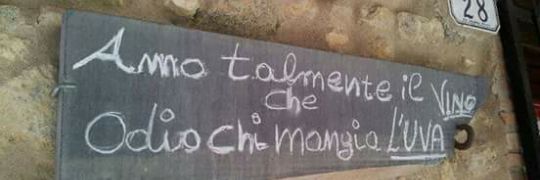 28
Amo talmente il VINO
che
Odio chi mangia L'UVA